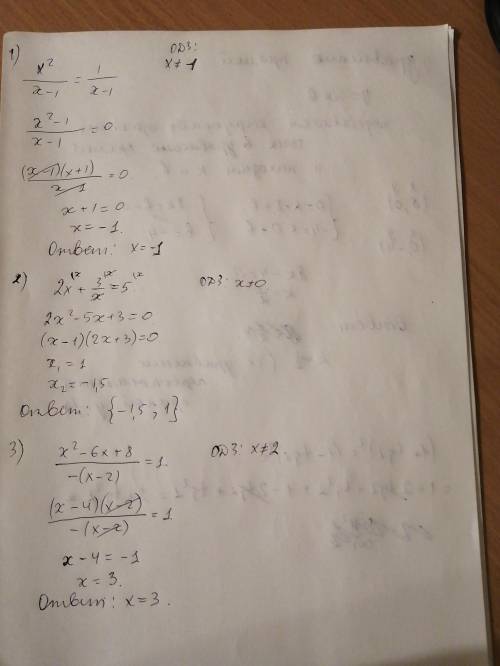 1) ОДЗ:
x²/(x-1) = 1/(x-1) x≠1
(x²-1)/(x-1) = 0
((x-1)(x+1))/(x-1) = 0
x+1=0
x=-1.
Ответ: x=-1
2) 2x + 3/x = 5 |·x ОДЗ: x≠0
2x²-5x+3=0
(x-1)(2x+3)=0
x₁=1
x₂=-1,5
Ответ: {-1,5; 1}
3) (x²-6x+8)/(-(x-2)) = 1. ОДЗ: x≠2
((x-4)(x-2))/(-(x-2)) = 1
x-4=-1
x=3.
Ответ: x=3.